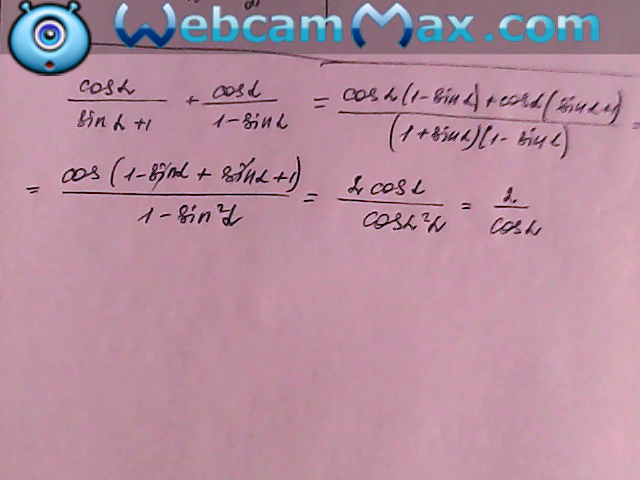 WebcamMax.com
cosα/(sinα+1) + cosα/(1-sinα) = (cosα(1-sinα)+cosα(sinα+1))/((1+sinα)(1-sinα)) =
= cos(1-sinα+sinα+1)/(1-sin²α) = 2cosα/cosα²α = 2/cosα